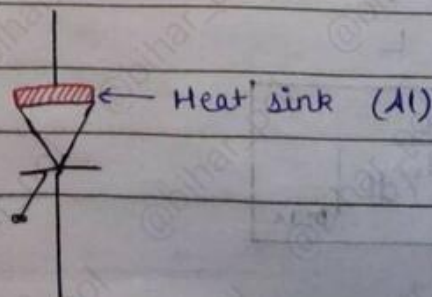 Heat sink (Al)